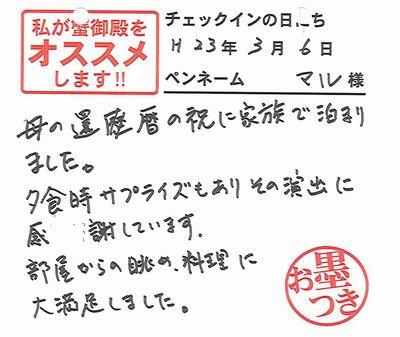 私が蟹御殿を
オススメ
します!!
チェックインの日にち
H 23年 3月 6日
ペンネーム マル 様
母の還暦の祝に家族で泊まり
ました。
夕食時サプライズもありその演出に
感 謝しています。
部屋からの眺め、料理に
大満足しました。
お墨つき